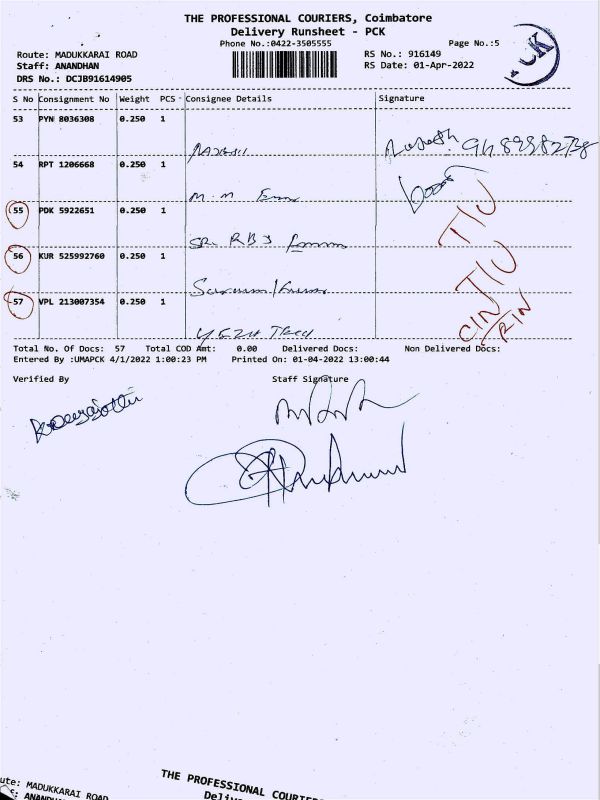 THE PROFESSIONAL COURIERS, Coimbatore
Delivery Runsheet - PCK
Phone No.:0422-3505555
Page No.:5
Route: MADUKKARAI ROAD
RS No.: 916149
Staff: ANANDHAN
RS Date: 01-Apr-2022
DRS No.: DCJB91614905
PCK
S No Consignment No Weight PCS Consignee Details Signature
53 PYN 8036308 0.250 1
54 RPT 1206668 0.250 1
M. M
55 PDK 5922651 0.250 1
SRI RBJ
TIU
56 KUR 525992760 0.250 1
TIU
57 VPL 213007354 0.250 1
CIN
RIN
Total No. Of Docs: 57 Total COD Amt: 0.00 Delivered Docs: Non Delivered Docs:
Entered By :UMAPCK 4/1/2022 1:00:23 PM Printed On: 01-04-2022 13:00:44
Verified By Staff Signature
ute: MADUKKARAI ROAD
THE PROFESSIONAL COURIER